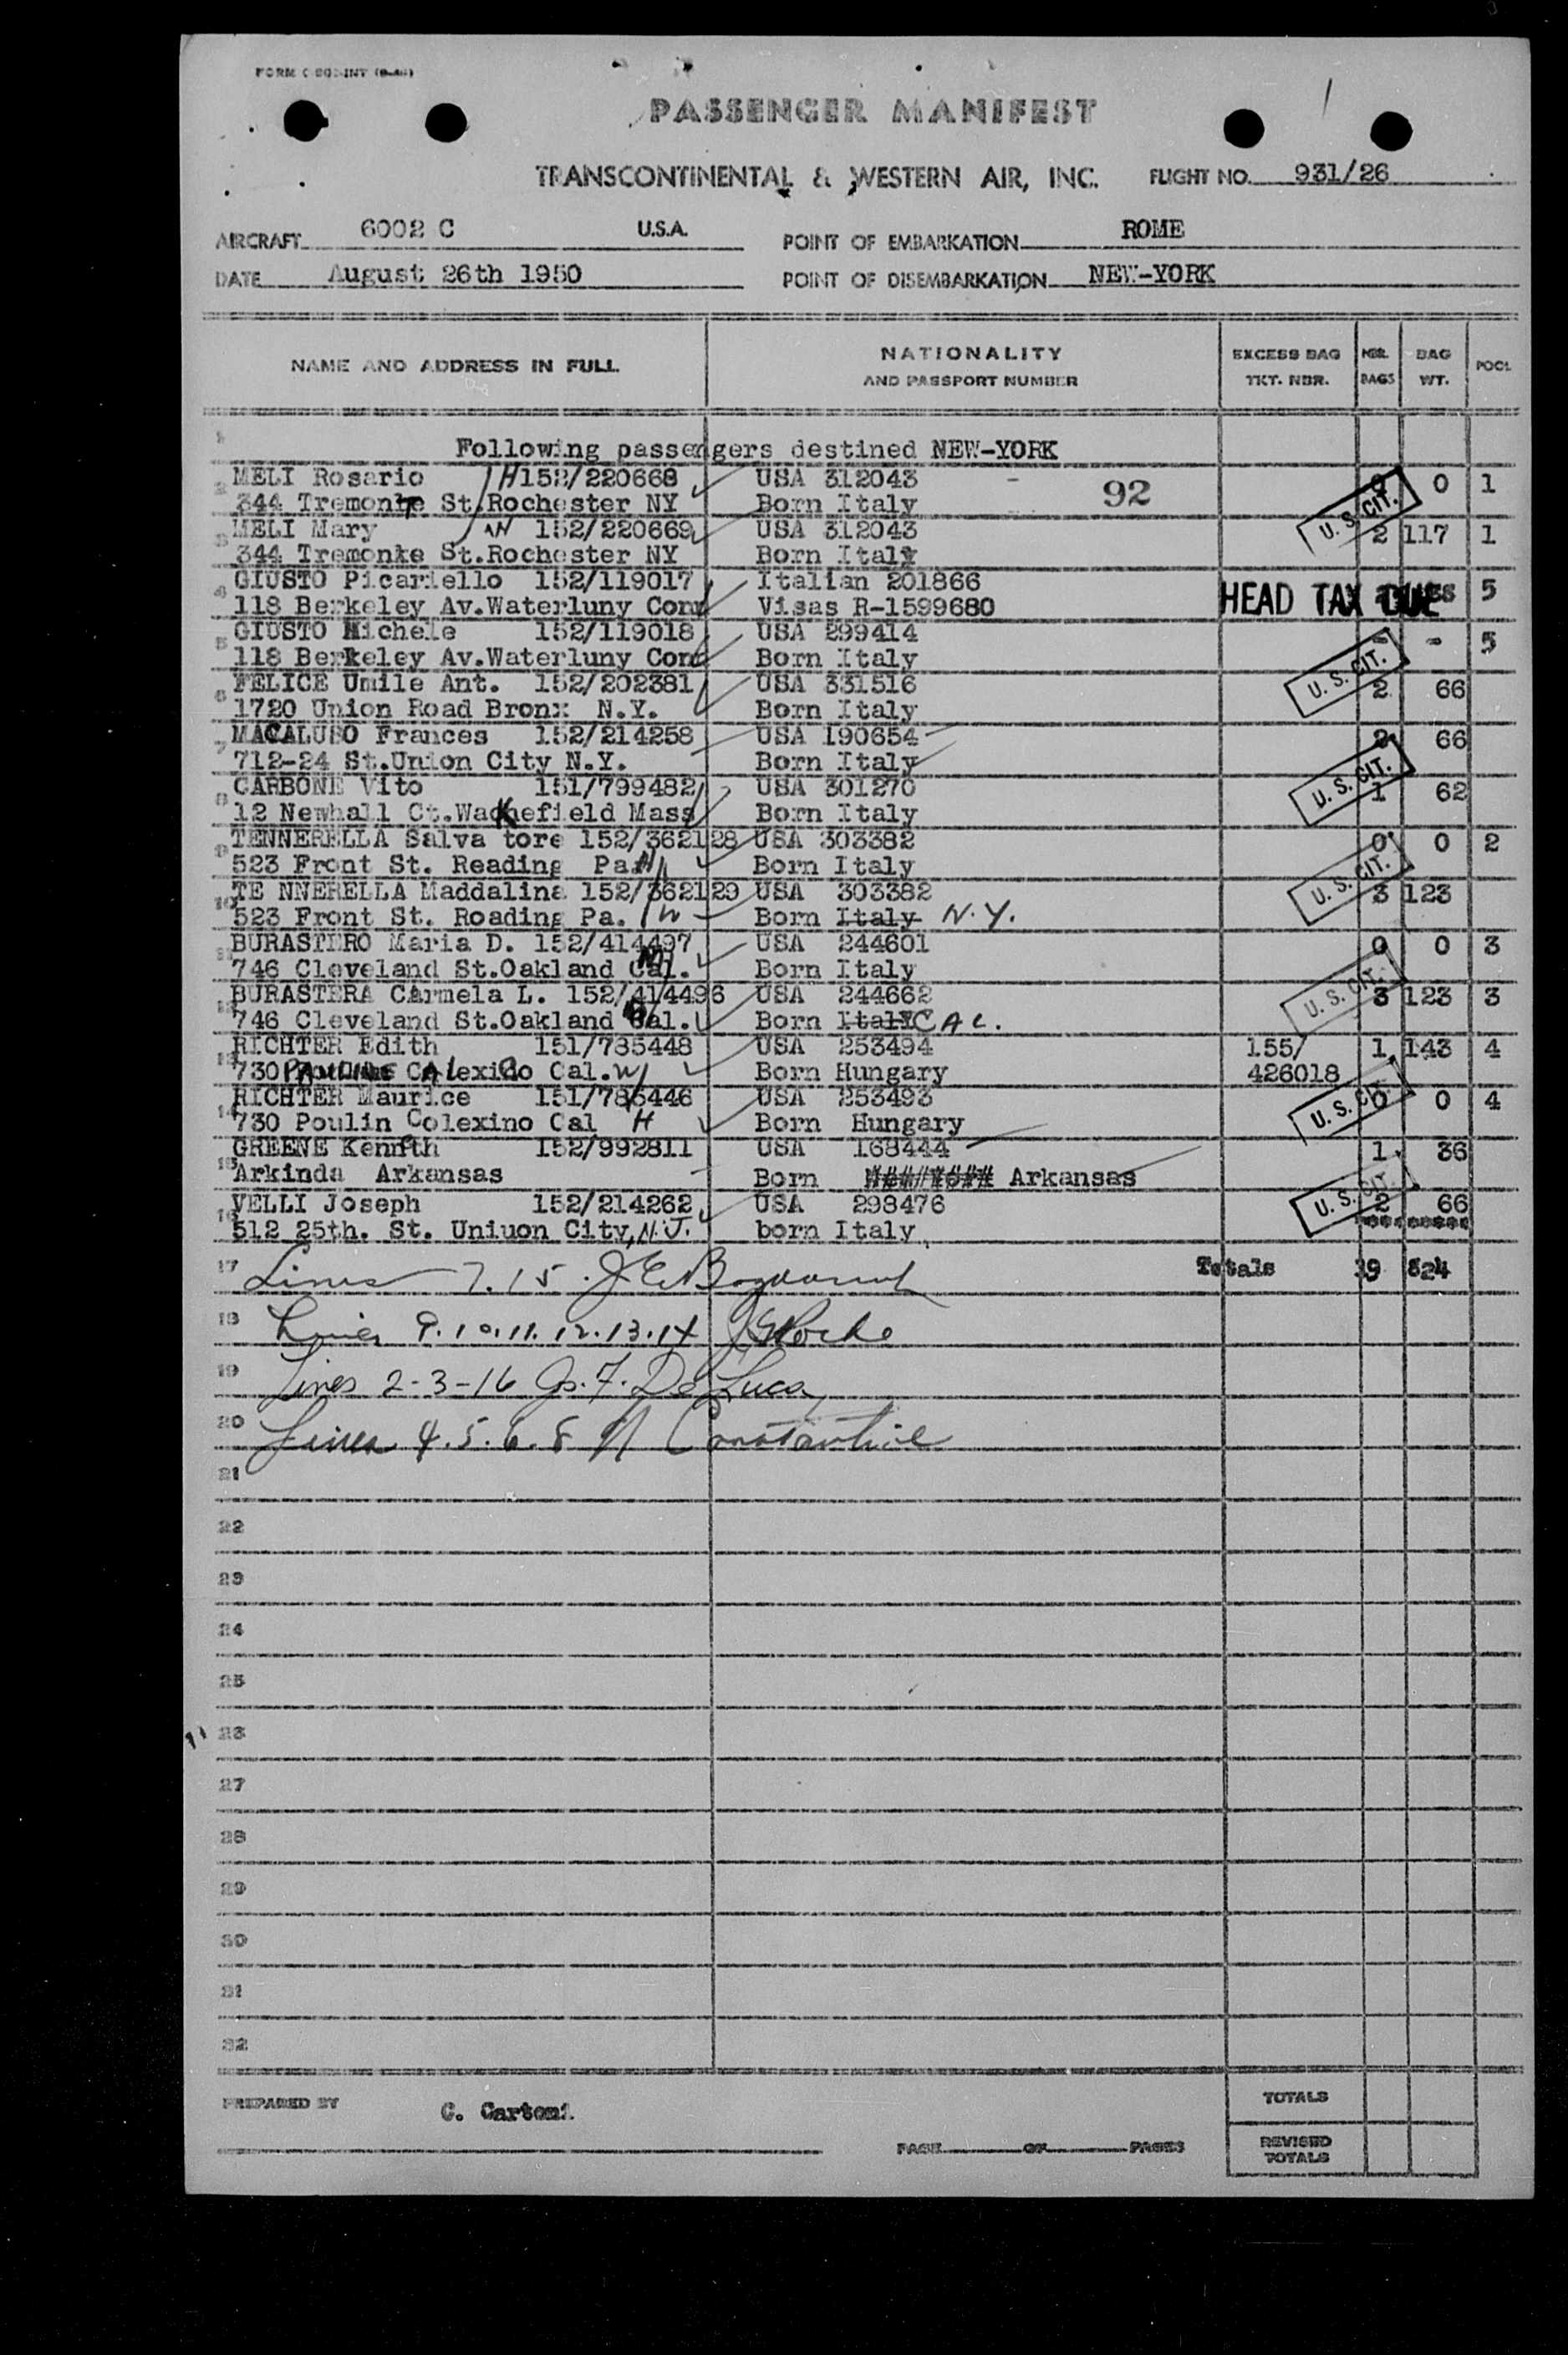 PASSENGER MANIFEST
TRANSCONTINENTAL & WESTERN AIR, INC. FLIGHT NO. 931/26
AIRCRAFT 6002 C U.S.A. POINT OF EMBARKATION ROME
DATE August 26th 1950 POINT OF DISEMBARKATION NEW-YORK
NAME AND ADDRESS IN FULL NATIONALITY AND PASSPORT NUMBER EXCESS BAG TKT. NBR. NBR. BAGS BAG WT. POOL
1 Following passengers destined NEW-YORK
2 MELI Rosario H 152/220668 USA 312043 - 92 0 1
344 Tremont St.Rochester NY Born Italy U. S. CIT.
3 MELI Mary W 152/220669 USA 312043 2 117 1
344 Tremonke St.Rochester NY Born Italy
4 GIUSTO Picariello 152/119017 Italian 201866 HEAD TAX DUE 5
118 Berkeley Av.Waterluny Conn Visas R-1599680
5 GIUSTO Michele 152/119018 USA 299414 - - 5
118 Berkeley Av.Waterluny Conn Born Italy U. S. CIT.
6 FELICE Umile Ant. 152/202381 USA 331516 2 66
1720 Union Road Bronx N.Y. Born Italy
7 MACALUSO Frances 152/214258 USA 190654 2 66
712-24 St.Union City N.Y. Born Italy U. S. CIT.
8 CARBONE Vito 151/799482 USA 301270 1 62
12 Newhall Ct.Wakefield Mass Born Italy
9 TENNERELLA Salva tore 152/362128 USA 303382 0 0 2
523 Front St. Reading Pa. H Born Italy U. S. CIT.
10 TE NNERELLA Maddalina 152/362129 USA 303382 3 123
523 Front St. Roading Pa. W Born Italy N.Y.
11 BURASTERO Maria D. 152/414497 USA 244601 0 0 3
746 Cleveland St.Oakland Cal. Born Italy U. S. CIT.
12 BURASTERA Carmela L. 152/414496 USA 244662 3 123 3
746 Cleveland St.Oakland Cal. Born Italy CAL.
13 RICHTER Edith 151/785448 USA 253494 155/ 1 143 4
730 CAlexico Cal. W Born Hungary 426018
14 RICHTER Maurice 151/785446 USA 253493 0 0 4
730 Poulin Colexino Cal H Born Hungary U. S. CIT.
15 GREENE Kenneth 152/992811 USA 168444 1 36
Arkinda Arkansas Born Arkansas
16 VELLI Joseph 152/214262 USA 298476 2 66
512 25th. St. Uniuon City, N.J. born Italy U. S. CIT.
17 Lines 7.15. Totals 19 824
18 Lines 9.10.11.12.13.14
19 Lines 2-3-16 Jos. F. De Luca
20 Lines 4.5.6.8 Constantine
21
22
23
24
25
26
27
28
29
30
31
32
PREPARED BY C. Cartoni TOTALS
PAGE OF PAGES REVISED TOTALS